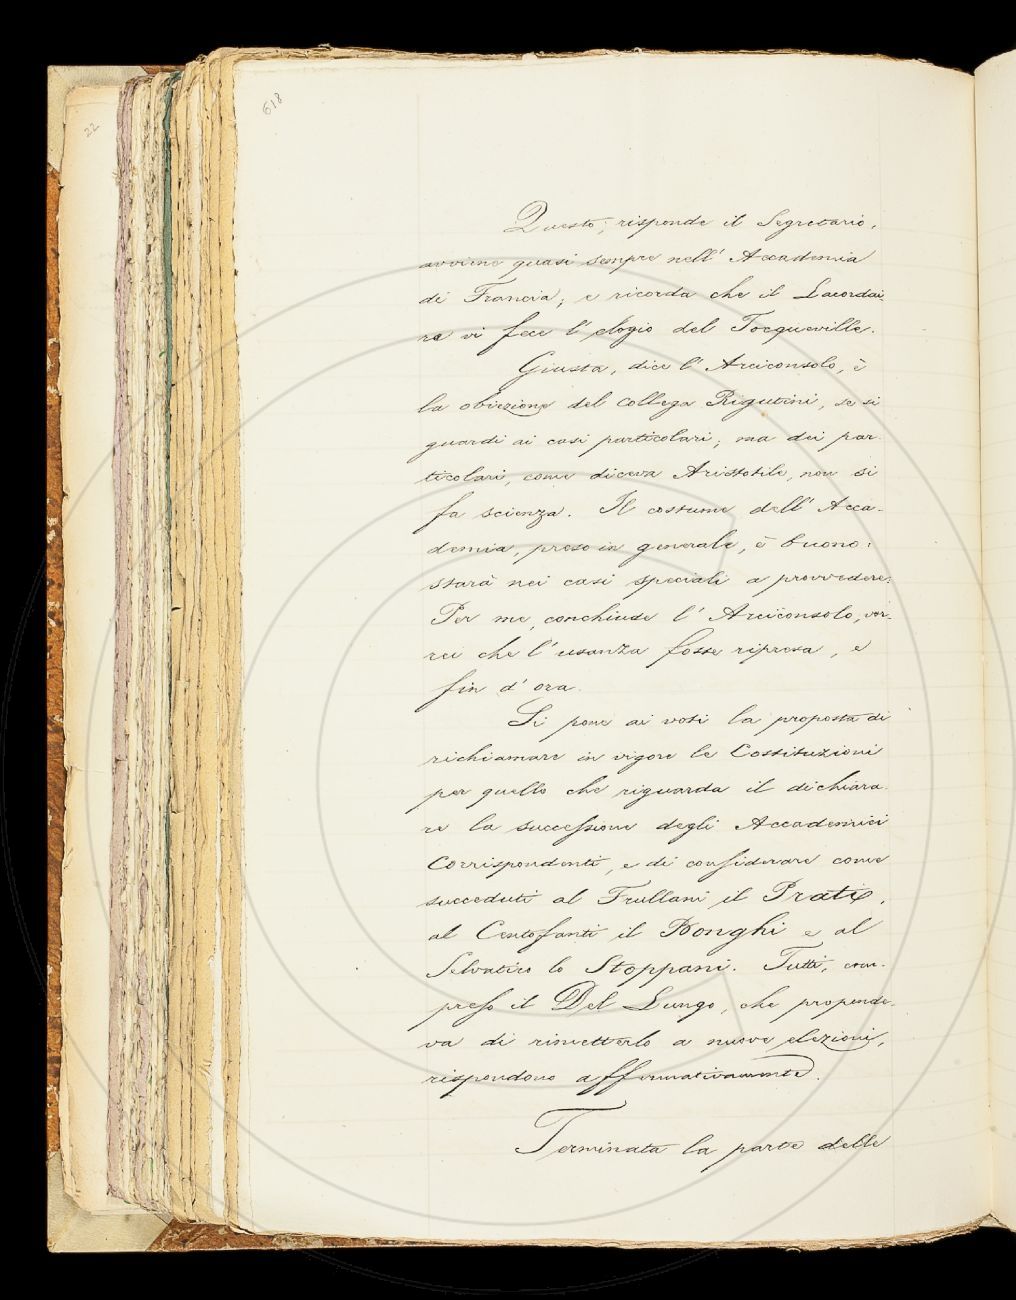 618
22
Questo, risponde il Segretario,
avviene quasi sempre nell' Accademia
di Francia; e ricorda che il Lacordai
re vi fece l' elogio del Tocqueville.
Giusta, dice l' Arciconsolo, è
la obiezione del collega Rigutini, se si
guardi ai casi particolari; ma dei par
ticolari, come diceva Aristotile, non si
fa scienza. Il costume dell' Acca-
demia, preso in generale, è buono:
starà nei casi speciali a provvedere.
Per me, conchiude l' Arciconsolo, vor-
rei che l' usanza fosse ripresa, e
fin d' ora.
Si pone ai voti la proposta di
richiamare in vigore le Costituzioni
per quello che riguarda il dichiara
re la successione degli Accademici
Corrispondenti, e di considerare come
succeduti al Frullani il Prati,
al Centofanti il Bonghi e al
Selvatico lo Stoppani. Tutti, com-
preso il Del Lungo, che propende-
va di rimetterlo a nuove elezioni,
rispondono affermativamente.
Terminata la parte delle